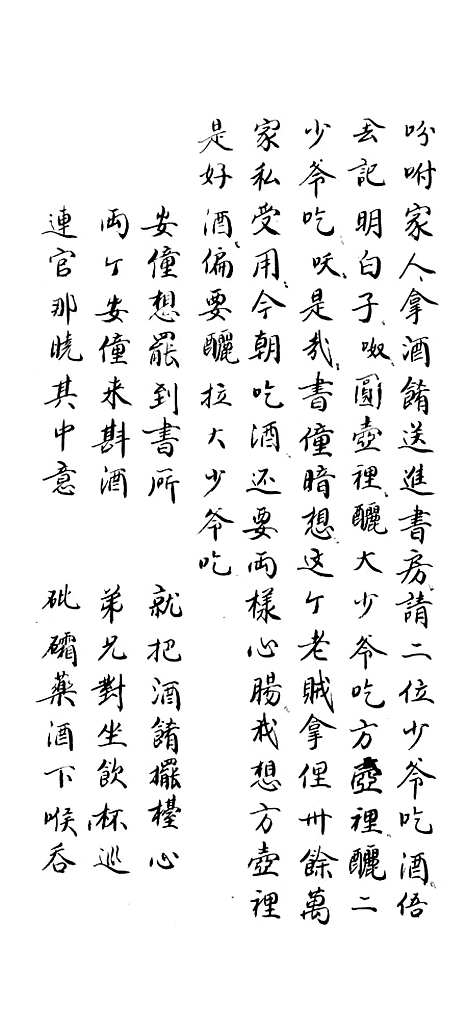 吩咐家人拿酒餚送進書房請二位少爷吃酒俉
去記明白子啜圓壺裡釃大少爷吃方壺裡釃二
少爷吃㕭是哉書僮暗想这个老賊拿俚卅餘萬
家私受用今朝吃酒还要両樣心腸我想方壺裡
是好酒偏要釃拉大少爷吃
安僮想罷到書所 就把酒餚擺檯心
両个安僮来斟酒 弟兄對坐飲杯巡
連官那曉其中意 砒礵藥酒下喉吞